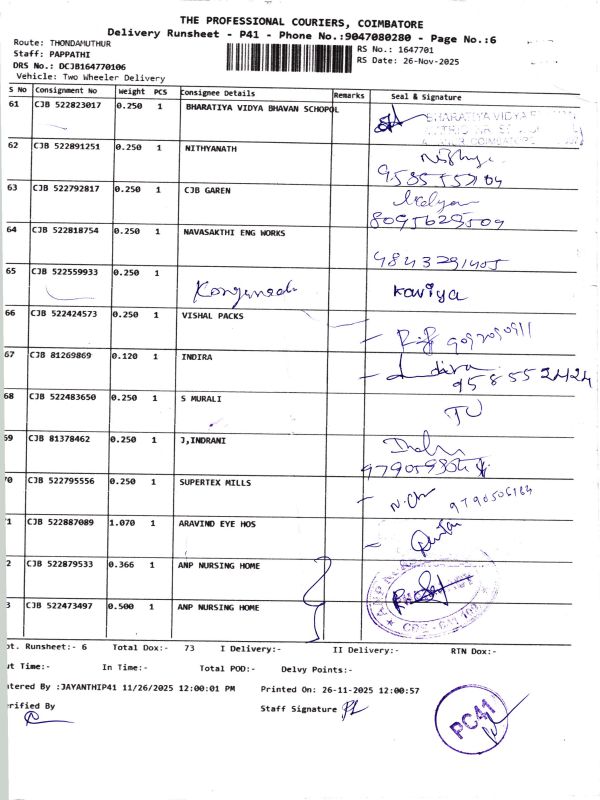 THE PROFESSIONAL COURIERS, COIMBATORE
Delivery Runsheet - P41 - Phone No.:9047080280 - Page No.:6
Route: THONDAMUTHUR
Staff: PAPPATHI
DRS No.: DCJB164770106
Vehicle: Two Wheeler Delivery
RS No.: 1647701
RS Date: 26-Nov-2025
S No Consignment No Weight PCS Consignee Details Remarks Seal & Signature
61 CJB 522823017 0.250 1 BHARATIYA VIDYA BHAVAN SCHOPOL BHARATIYA VIDYA
62 CJB 522891251 0.250 1 NITHYANATH
63 CJB 522792817 0.250 1 CJB GAREN
8095629509
64 CJB 522818754 0.250 1 NAVASAKTHI ENG WORKS
9843291405
65 CJB 522559933 0.250 1 kaviya
66 CJB 522424573 0.250 1 VISHAL PACKS
67 CJB 81269869 0.120 1 INDIRA
9585524424
68 CJB 522483650 0.250 1 S MURALI
69 CJB 81378462 0.250 1 J,INDRANI
70 CJB 522795556 0.250 1 SUPERTEX MILLS
1 CJB 522887089 1.070 1 ARAVIND EYE HOS
2 CJB 522879533 0.366 1 ANP NURSING HOME
3 CJB 522473497 0.500 1 ANP NURSING HOME
ot. Runsheet:- 6 Total Dox:- 73 I Delivery:- II Delivery:- RTN Dox:-
ut Time:- In Time:- Total POD:- Delvy Points:-
ntered By :JAYANTHIP41 11/26/2025 12:00:01 PM Printed On: 26-11-2025 12:00:57
erified By Staff Signature
PC41